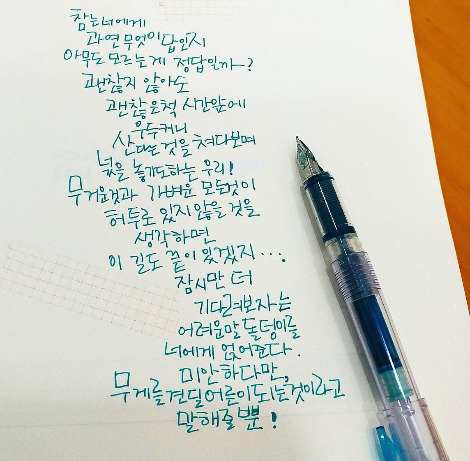 참는너에게
과연무엇이답인지
아무도모르는게 정답일까~?
괜찮지 않아도
괜찮은척 시간앞에
우두커니
산다는것을 쳐다보며
넋을 놓기도하는 우리!
무거운것과 가벼운 모든것이
허투로 있지않을 것을
생각하면
이 길도 끝이 있겠지···!
잠시만 더
기다려보자는
어려운말 돌덩이를
너에게 얹어준다.
미안하다만,
무게를견딜어른이되는것이라고
말해줄뿐!